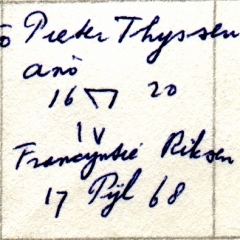 Pieter Thyssen
anō
16 20
IV
Francyntie Riksen
17 Pijl 68